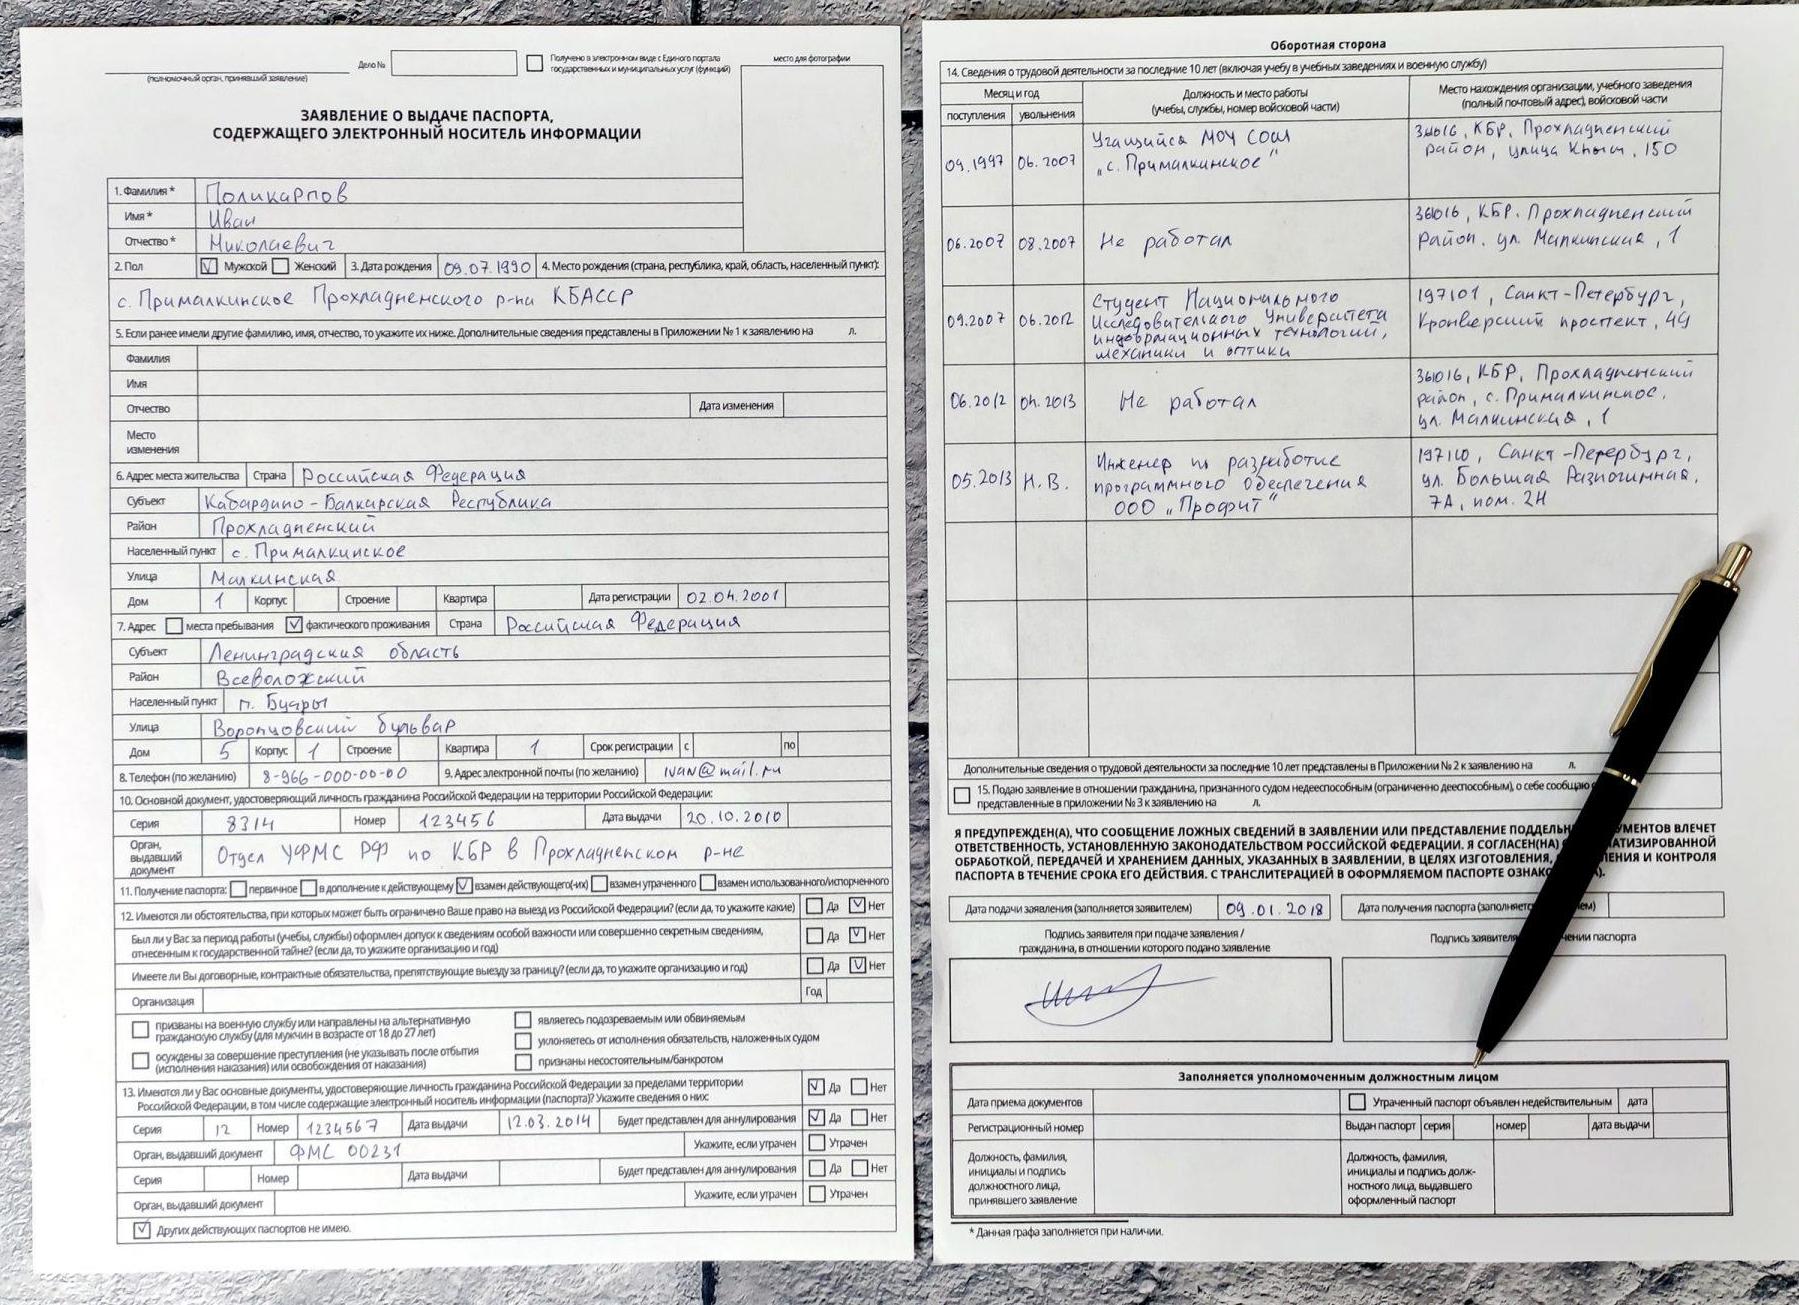 (полномочный орган, принявший заявление)
Дело №
Получено в электронном виде с Единого портала
государственных и муниципальных услуг (функций)
место для фотографии
ЗАЯВЛЕНИЕ О ВЫДАЧЕ ПАСПОРТА,
СОДЕРЖАЩЕГО ЭЛЕКТРОННЫЙ НОСИТЕЛЬ ИНФОРМАЦИИ
1. Фамилия * Поликарпов
Имя * Иван
Отчество * Николаевич
2. Пол V Мужской Женский 3. Дата рождения 09.07.1990 4. Место рождения (страна, республика, край, область, населенный пункт):
с. Прималкинское Прохладненского р-на КБАССР
5. Если ранее имели другие фамилию, имя, отчество, то укажите их ниже. Дополнительные сведения представлены в Приложении № 1 к заявлению на л.
Фамилия
Имя
Отчество Дата изменения
Место
изменения
6. Адрес места жительства Страна Российская Федерация
Субъект Кабардино-Балкарская Республика
Район Прохладненский
Населенный пункт с. Прималкинское
Улица Малкинская
Дом 1 Корпус Строение Квартира Дата регистрации 02.04.2001
7. Адрес места пребывания V фактического проживания Страна Российская Федерация
Субъект Ленинградская область
Район Всеволожский
Населенный пункт п. Бугры
Улица Воронцовский бульвар
Дом 5 Корпус 1 Строение Квартира 1 Срок регистрации с по
8. Телефон (по желанию) 8-966-000-00-00 9. Адрес электронной почты (по желанию) ivan@mail.ru
10. Основной документ, удостоверяющий личность гражданина Российской Федерации на территории Российской Федерации:
Серия 8314 Номер 123456 Дата выдачи 20.10.2010
Орган,
выдавший
документ Отдел УФМС РФ по КБР в Прохладненском р-не
11. Получение паспорта: первичное в дополнение к действующему V взамен действующего(-их) взамен утраченного взамен использованного/испорченного
12. Имеются ли обстоятельства, при которых может быть ограничено Ваше право на выезд из Российской Федерации? (если да, то укажите какие) Да V Нет
Был ли у Вас за период работы (учебы, службы) оформлен допуск к сведениям особой важности или совершенно секретным сведениям,
отнесенным к государственной тайне? (если да, то укажите организацию и год) Да V Нет
Имеете ли Вы договорные, контрактные обязательства, препятствующие выезду за границу? (если да, то укажите организацию и год) Да V Нет
Организация Год
призваны на военную службу или направлены на альтернативную
гражданскую службу (для мужчин в возрасте от 18 до 27 лет)
осуждены за совершение преступления (не указывать после отбытия
(исполнения наказания) или освобождения от наказания)
являетесь подозреваемым или обвиняемым
уклоняетесь от исполнения обязательств, наложенных судом
признаны несостоятельным/банкротом
13. Имеются ли у Вас основные документы, удостоверяющие личность гражданина Российской Федерации за пределами территории
Российской Федерации, в том числе содержащие электронный носитель информации (паспорта)? Укажите сведения о них: V Да Нет
Серия 12 Номер 1234567 Дата выдачи 12.03.2014 Будет представлен для аннулирования V Да Нет
Орган, выдавший документ ФМС 00231 Укажите, если утрачен Утрачен
Серия Номер Дата выдачи Будет представлен для аннулирования Да Нет
Орган, выдавший документ Укажите, если утрачен Утрачен
V Других действующих паспортов не имею.
Оборотная сторона
14. Сведения о трудовой деятельности за последние 10 лет (включая учебу в учебных заведениях и военную службу)
Месяц и год
поступления увольнения
Должность и место работы
(учебы, службы, номер войсковой части)
Место нахождения организации, учебного заведения
(полный почтовый адрес), войсковой части
09.1997 06.2007
Учащийся МОУ СОШ
„с. Прималкинское"
361016, КБР, Прохладненский
район, улица 150
06.2007 08.2007 Не работал
361016, КБР. Прохладненский
район. ул. Малкинская, 1
09.2007 06.2012
Студент Национального
Исследовательского Университета
информационных технологий,
механики и оптики
197101, Санкт-Петербург,
Кронверкский проспект, 49
06.2012 04.2013 Не работал
361016, КБР, Прохладненский
район, с. Прималкинское,
ул. Малкинская, 1
05.2013 Н.В.
Инженер по разработке
программного обеспечения
ООО „Профит"
197110, Санкт-Петербург,
ул. Большая Разночинная,
7А, пом. 2Н
Дополнительные сведения о трудовой деятельности за последние 10 лет представлены в Приложении № 2 к заявлению на л.
15. Подаю заявление в отношении гражданина, признанного судом недееспособным (ограниченно дееспособным), о себе сообщаю
представленные в приложении № 3 к заявлению на л.
Я ПРЕДУПРЕЖДЕН(А), ЧТО СООБЩЕНИЕ ЛОЖНЫХ СВЕДЕНИЙ В ЗАЯВЛЕНИИ ИЛИ ПРЕДСТАВЛЕНИЕ ПОДДЕЛЬН УМЕНТОВ ВЛЕЧЕТ
ОТВЕТСТВЕННОСТЬ, УСТАНОВЛЕННУЮ ЗАКОНОДАТЕЛЬСТВОМ РОССИЙСКОЙ ФЕДЕРАЦИИ. Я СОГЛАСЕН(НА) АТИЗИРОВАННОЙ
ОБРАБОТКОЙ, ПЕРЕДАЧЕЙ И ХРАНЕНИЕМ ДАННЫХ, УКАЗАННЫХ В ЗАЯВЛЕНИИ, В ЦЕЛЯХ ИЗГОТОВЛЕНИЯ, ЛЕНИЯ И КОНТРОЛЯ
ПАСПОРТА В ТЕЧЕНИЕ СРОКА ЕГО ДЕЙСТВИЯ. С ТРАНСЛИТЕРАЦИЕЙ В ОФОРМЛЯЕМОМ ПАСПОРТЕ ОЗНАКО А).
Дата подачи заявления (заполняется заявителем) 09.01.2018 Дата получения паспорта (заполняется ем)
Подпись заявителя при подаче заявления /
гражданина, в отношении которого подано заявление
Подпись заявителя чении паспорта
Заполняется уполномоченным должностным лицом
Дата приема документов Утраченный паспорт объявлен недействительным дата
Регистрационный номер Выдан паспорт серия номер дата выдачи
Должность, фамилия,
инициалы и подпись
должностного лица,
принявшего заявление
Должность, фамилия,
инициалы и подпись долж-
ностного лица, выдавшего
оформленный паспорт
* Данная графа заполняется при наличии.